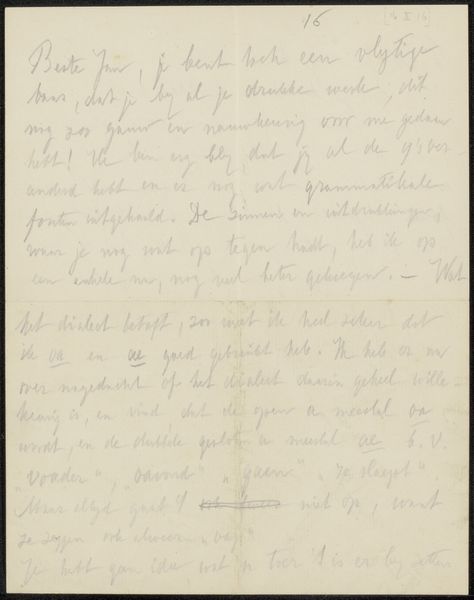 16
Beste Jan, je bent toch een vlytige
baas, dat je by al je drukke werk, dit
nog zoo gauw en nauwkeurig voor me gedaan
hebt! Ik ben erg bly, dat jy al de y's ver-
anderd hebt en er nog wat grammatikale
fouten uitgehaald. De zinnen en uitdrukkingen,
waar je nog wat op tegen hadt, heb ik op
een enkele na, nog veel beter gekregen. — Wat
het dialect betreft, zoo weet ik heel zeker dat
ik oa en ae goed gebruikt heb. Ik heb er nu
over nagedacht of het dialect daarin geheel wille-
keurig is, en vind, dat de open a meestal oa
wordt, en de dubbele gesloten a meestal ae b.v.
"voader", "oavond" "gaen" "ze slaept".
Maar altyd gaat 't niet op, want
ze zeggen ook alweer
Je hebt geen idee wat 'n toer 't is er by